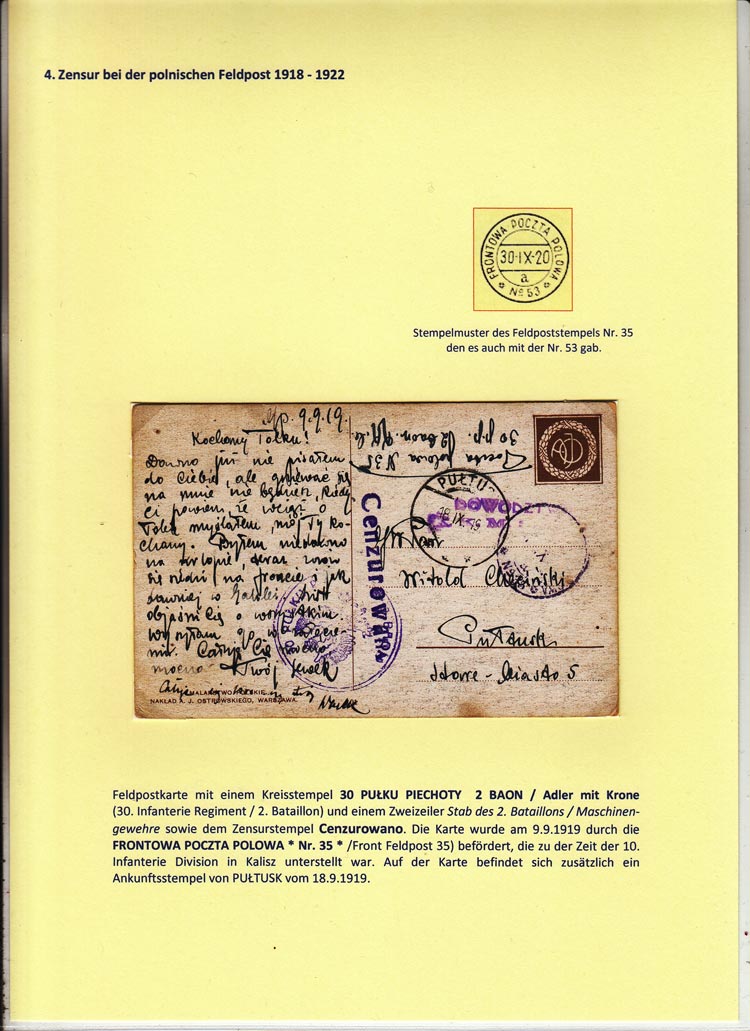 4. Zensur bei der polnischen Feldpost 1918 - 1922
FRONTOWA POCZTA POLOWA
30·IX-20
a
* № 53 *
Stempelmuster des Feldpoststempels Nr. 35
den es auch mit der Nr. 53 gab.
9.9.19.
Kochany Tolku!
Dawno już nie pisałem
do Ciebie, ale gniewać się
na mnie nie będziesz, kiedy
Ci powiem, że wciąż o
Tobie myślałem, mój Ty ko-
chany. Byłem niedawno
na urlopie, teraz znów
się na froncie i jak
dawniej w
o wszystkim.
Całuję Cię mocno
mocno Twój
NAKŁAD A. J. OSTROWSKIEGO, WARSZAWA.
30 p.p. baon
Poczta polowa N 35
Cenzurowano
PUŁTUSK
DOWÓDZTWO
PUŁKU
Witold
Pułtusk
Stare-Miasto 5
Feldpostkarte mit einem Kreisstempel 30 PUŁKU PIECHOTY 2 BAON / Adler mit Krone
(30. Infanterie Regiment / 2. Bataillon) und einem Zweizeiler Stab des 2. Bataillons / Maschinen-
gewehre sowie dem Zensurstempel Cenzurowano. Die Karte wurde am 9.9.1919 durch die
FRONTOWA POCZTA POLOWA * Nr. 35 * /Front Feldpost 35) befördert, die zu der Zeit der 10.
Infanterie Division in Kalisz unterstellt war. Auf der Karte befindet sich zusätzlich ein
Ankunftsstempel von PUŁTUSK vom 18.9.1919.